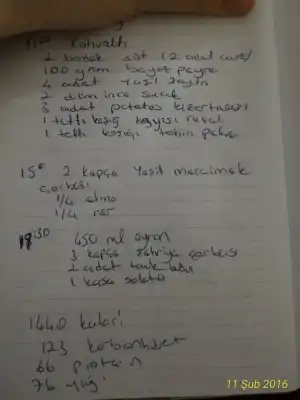 11:00 Kahvaltı
1 bardak süt (2 adet ceviz)
100 gram beyaz peynir
4 adet yeşil zeytin
2 dilim ince sucuk
3 adet patates kızartması
1 tatlı kaşığı
1 tatlı kaşığı tahin pekmez
15:00 2 kepçe yeşil mercimek
çorbası
1/4 elma
1/4 nar
18:30 450 ml ayran
3 kepçe şehriye çorbası
2 adet tavuk
1 kase salata
1440 kalori
123 karbonhidrat
66 protein
76 yağ
11 Şub 2016